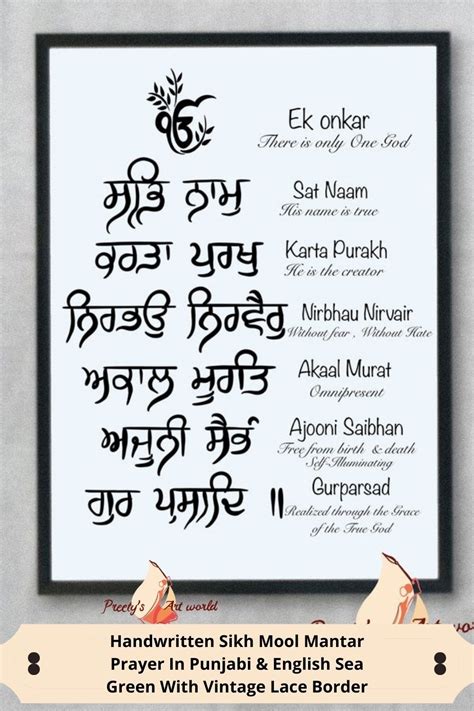 ੴ Ek onkar
There is only One God
ਸਤਿ ਨਾਮੁ Sat Naam
His name is true
ਕਰਤਾ ਪੁਰਖੁ Karta Purakh
He is the creator
ਨਿਰਭਉ ਨਿਰਵੈਰੁ Nirbhau Nirvair
Without fear , Without Hate
ਅਕਾਲ ਮੂਰਤਿ Akaal Murat
Omnipresent
ਅਜੂਨੀ ਸੈਭੰ Ajooni Saibhan
Free from birth & death
Self-Illuminating
ਗੁਰ ਪ੍ਰਸਾਦਿ ॥ Gurparsad
Realized through the Grace
of the True God
Preety's Art world
Handwritten Sikh Mool Mantar
Prayer In Punjabi & English Sea
Green With Vintage Lace Border